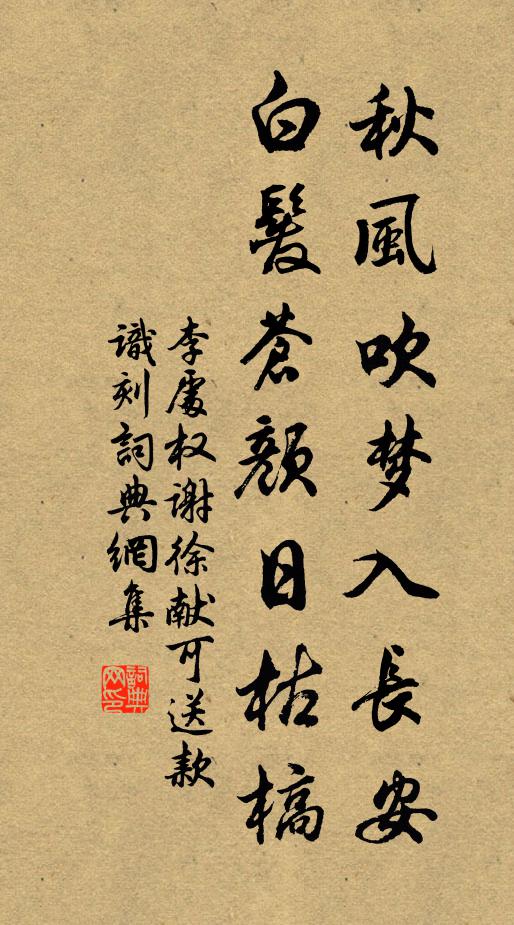 秋風吹梦入長安
白髮蒼顏日枯槁
李處权谢徐献可送款
識刻詞典網集
詞典网印